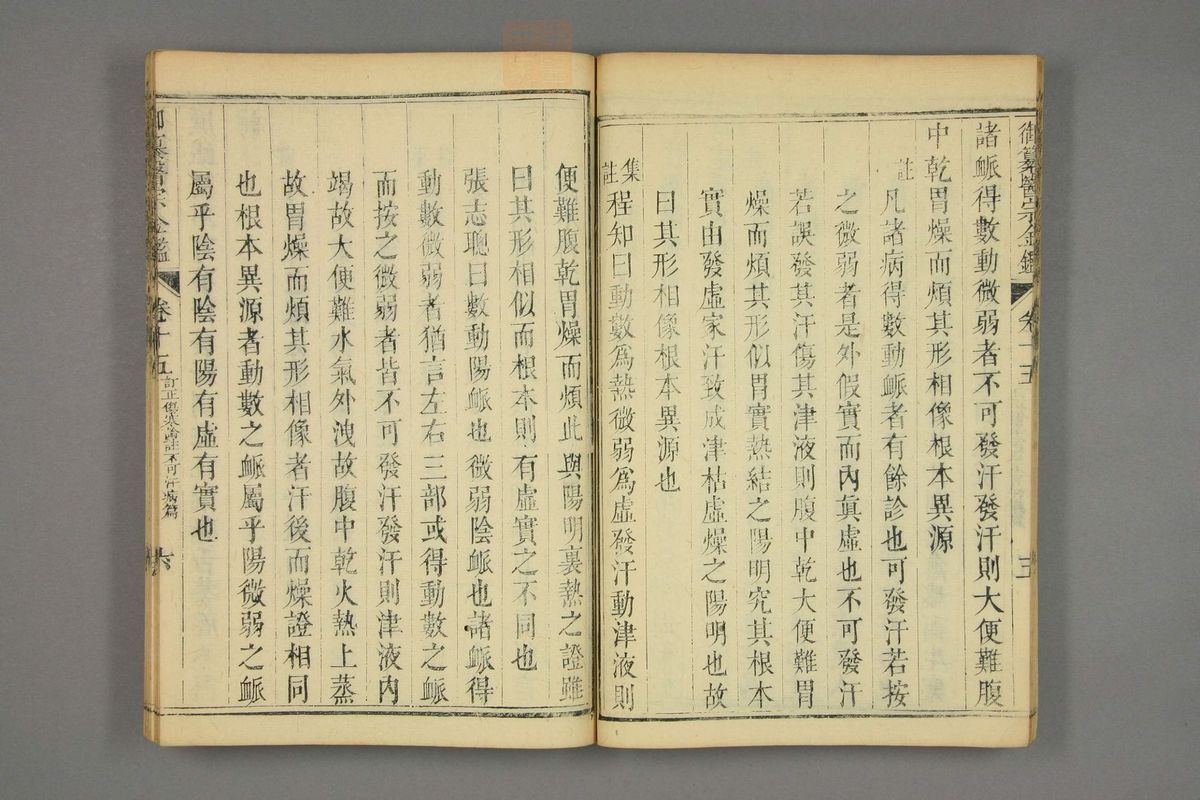 御纂醫宗金鑑 卷十五 五
諸脈得數動微弱者不可發汗發汗則大便難腹
中乾胃燥而煩其形相像根本異源
註凡諸病得數動脈者有餘診也可發汗若按
之微弱者是外假實而內眞虛也不可發汗
若誤發其汗傷其津液則腹中乾大便難胃
燥而煩其形似胃實熱結之陽明究其根本
實由發虛家汗致成津枯虛燥之陽明也故
曰其形相像根本異源也
集註程知曰動數爲熱微弱爲虛發汗動津液則
便難腹乾胃燥而煩此與陽明裏熱之證雖
曰其形相似而根本則有虛實之不同也
張志聰曰數動陽脈也微弱陰脈也諸脈得
動數微弱者猶言左右三部或得動數之脈
而按之微弱者皆不可發汗發汗則津液內
竭故大便難水氣外洩故腹中乾火熱上蒸
故胃燥而煩其形相像者汗後而燥證相同
也根本異源者動數之脈屬乎陽微弱之脈
屬乎陰有陰有陽有虛有實也
御纂醫宗金鑑 卷十五 訂正傷寒論註不可汗病篇 六